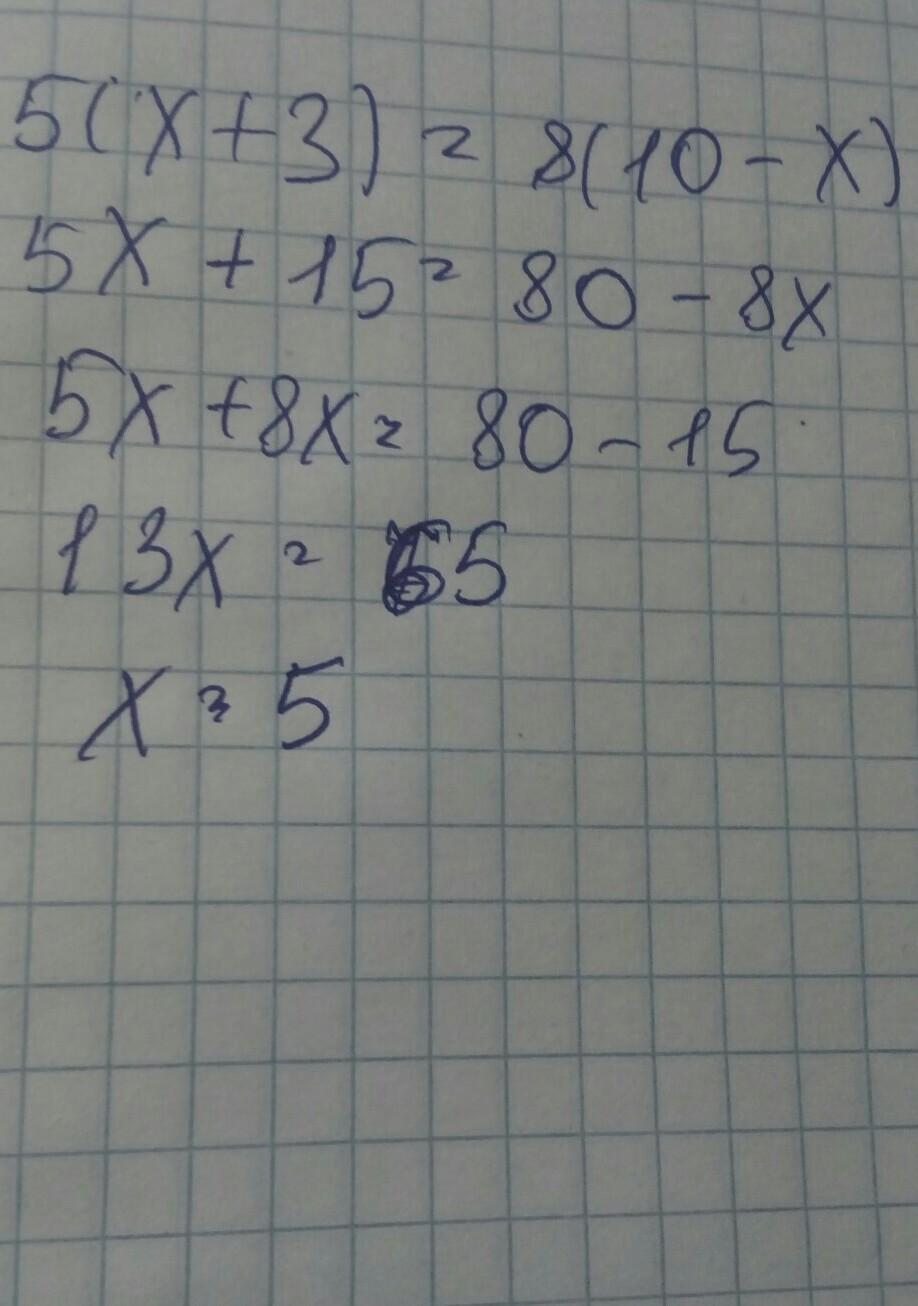 5(x+3) = 8(10-x)
5x + 15 = 80 - 8x
5x + 8x = 80 - 15
13x = 65
x = 5